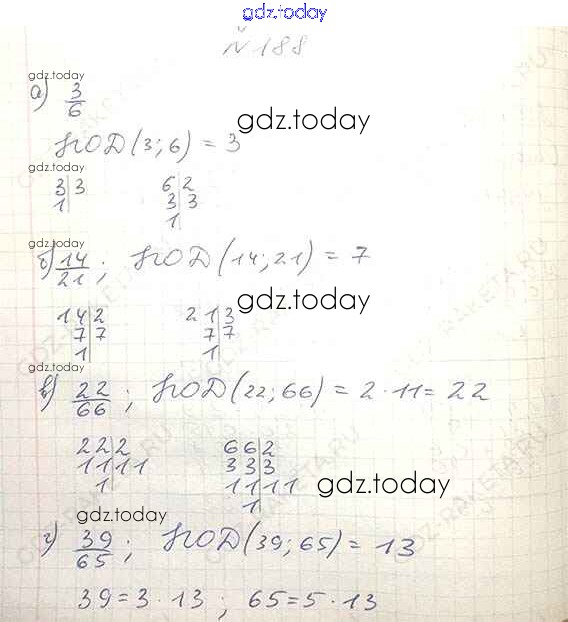 gdz.today
№188
gdz.today
а) 3/6
gdz.today
НОД(3;6) = 3
gdz.today
3|3 6|2
1| 3|3
1|
б) 14/21; НОД(14;21) = 7
gdz.today
14|2 21|3
7|7 7|7
1| 1|
gdz.today
в) 22/66; НОД(22;66) = 2·11 = 22
22|2 66|2
11|11 33|3
1| 11|11
1|
gdz.today
gdz.today
г) 39/65; НОД(39;65) = 13
39 = 3·13; 65 = 5·13